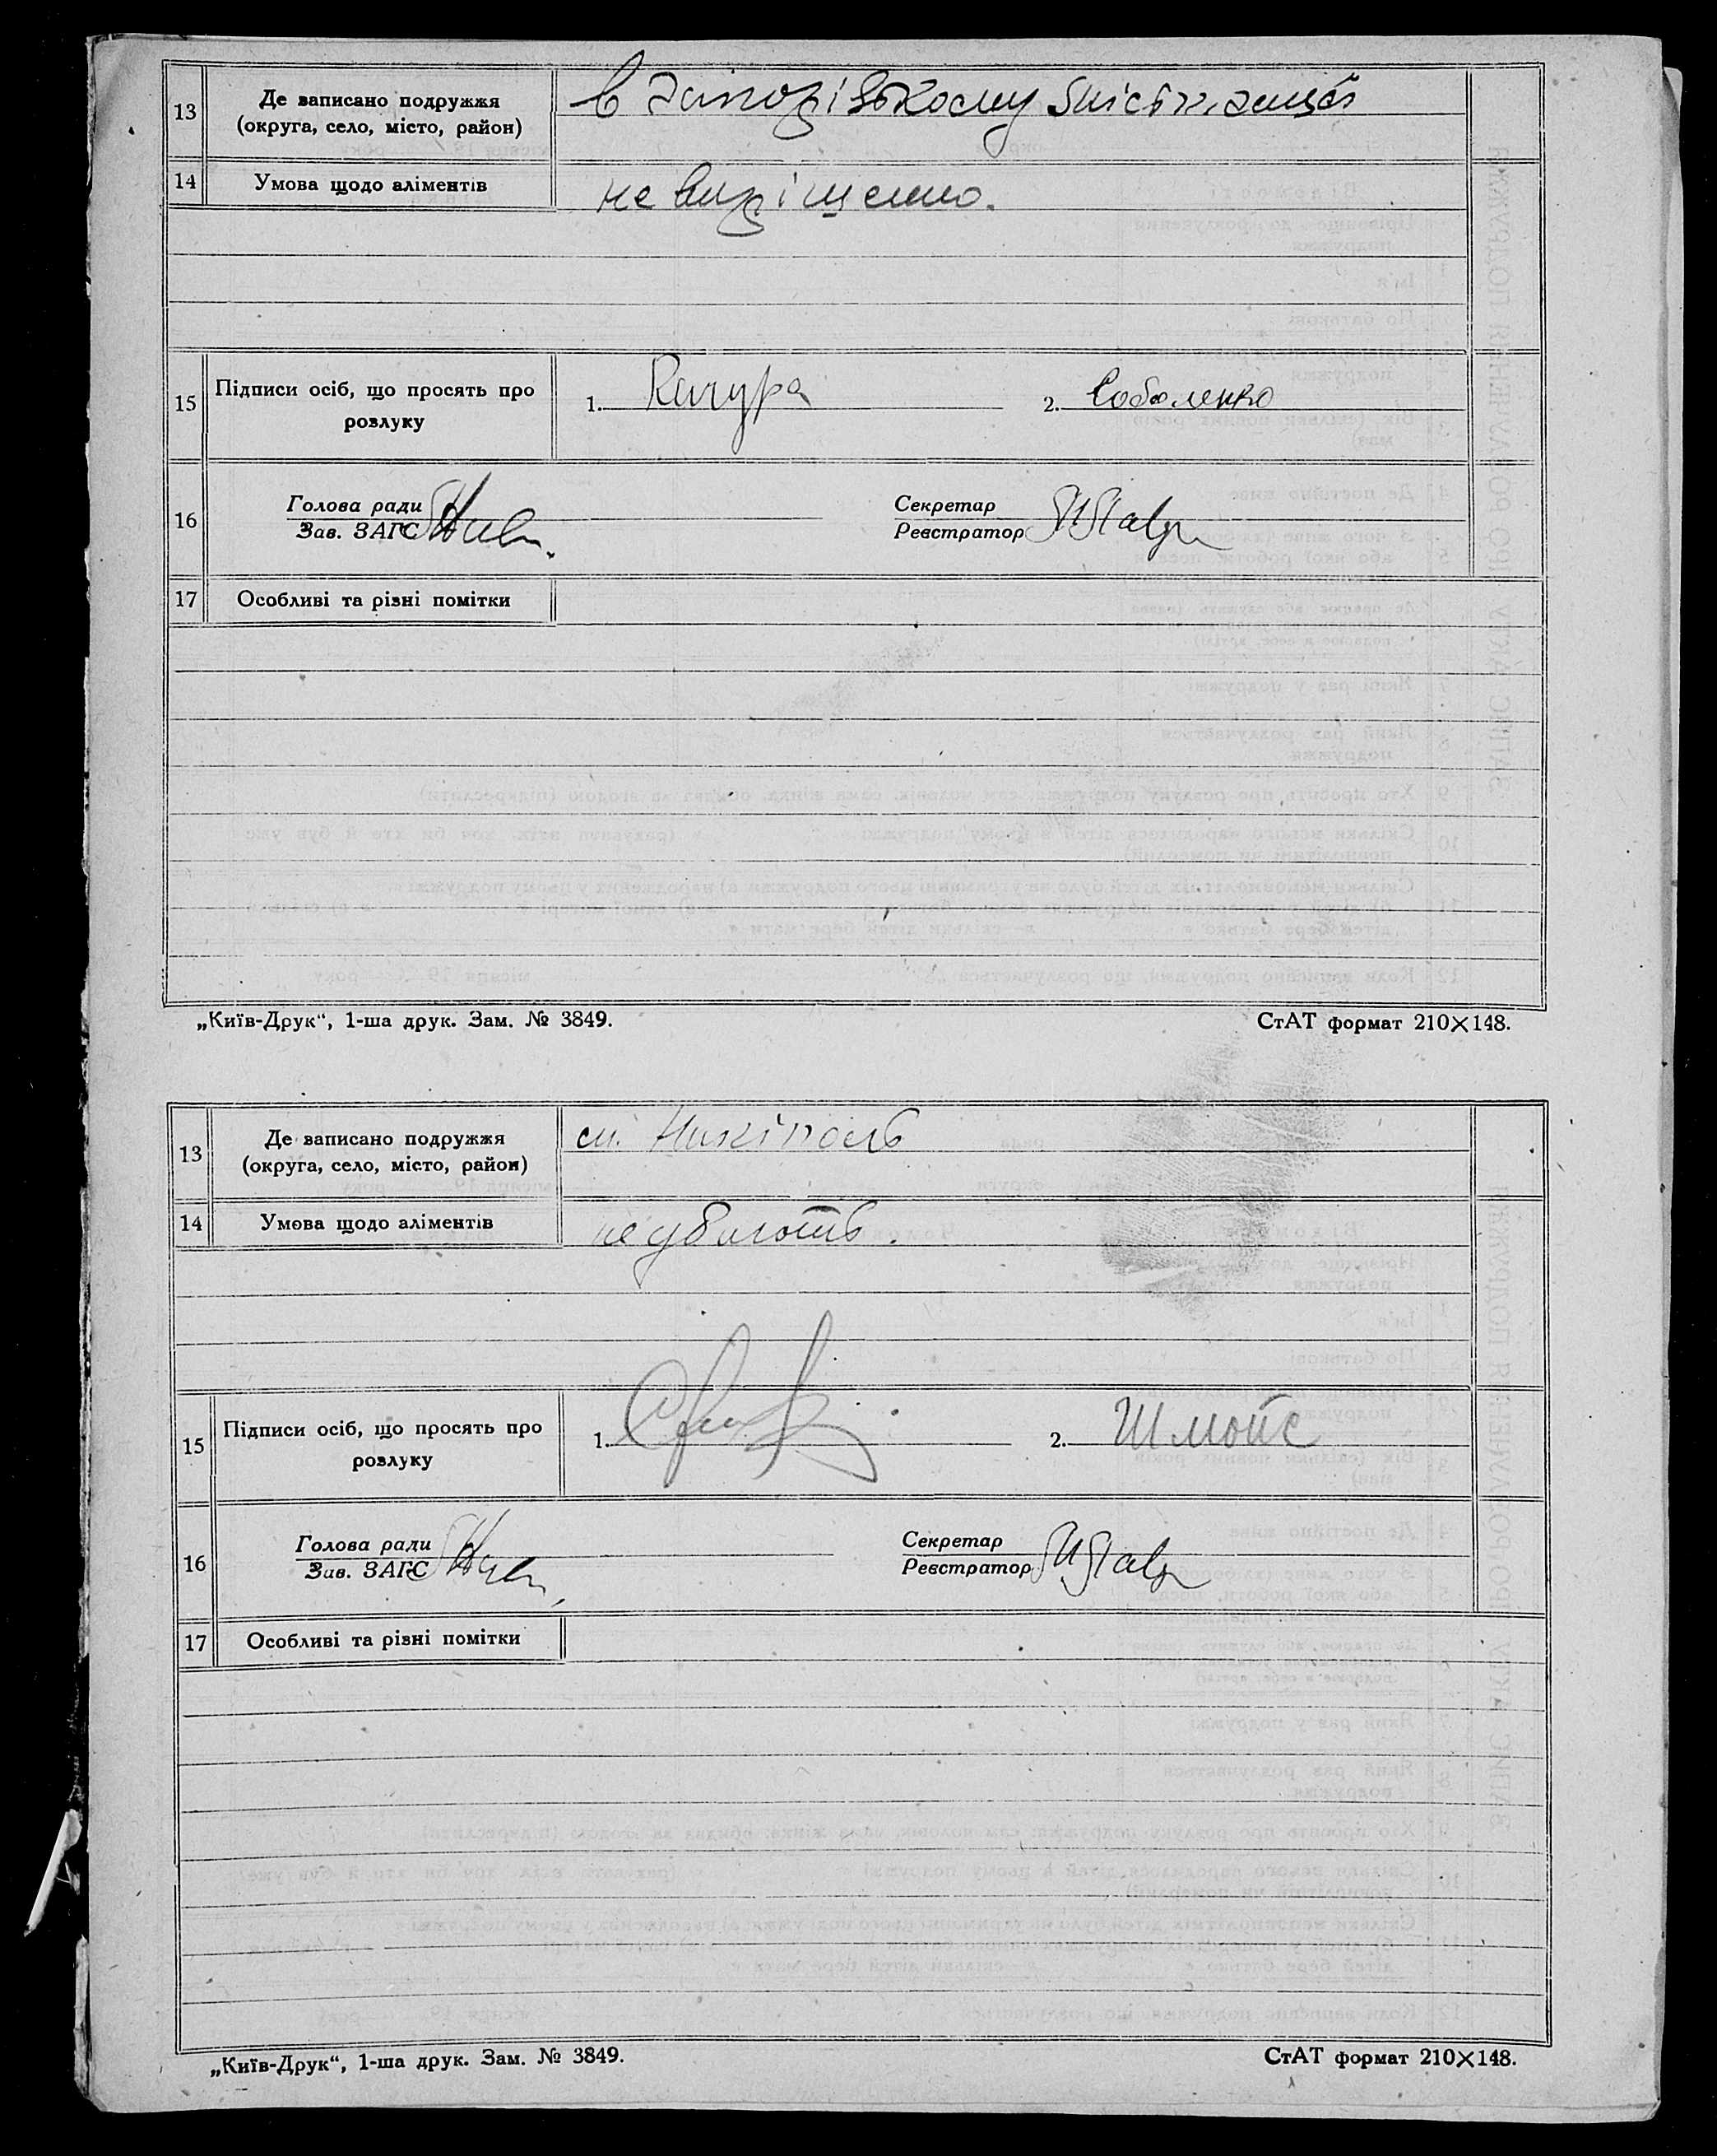 13 Де записано подружжя
(округа, село, місто, район)
в Запорізькому міськзагсі
14 Умова щодо аліментів
не вирішенно.
15 Підписи осіб, що просять про
розлуку
1. Качура 2. Соболенко
16 Голова ради
Зав. ЗАГС
Секретар
Реєстратор
17 Особливі та різні помітки
„Київ-Друк“, 1-ша друк. Зам. № 3849. СтАТ формат 210×148.
13 Де записано подружжя
(округа, село, місто, район)
м. Нікіполь
14 Умова щодо аліментів
15 Підписи осіб, що просять про
розлуку
1. 2. Шмойс
16 Голова ради
Зав. ЗАГС
Секретар
Реєстратор
17 Особливі та різні помітки
„Київ-Друк“, 1-ша друк. Зам. № 3849. СтАТ формат 210×148.